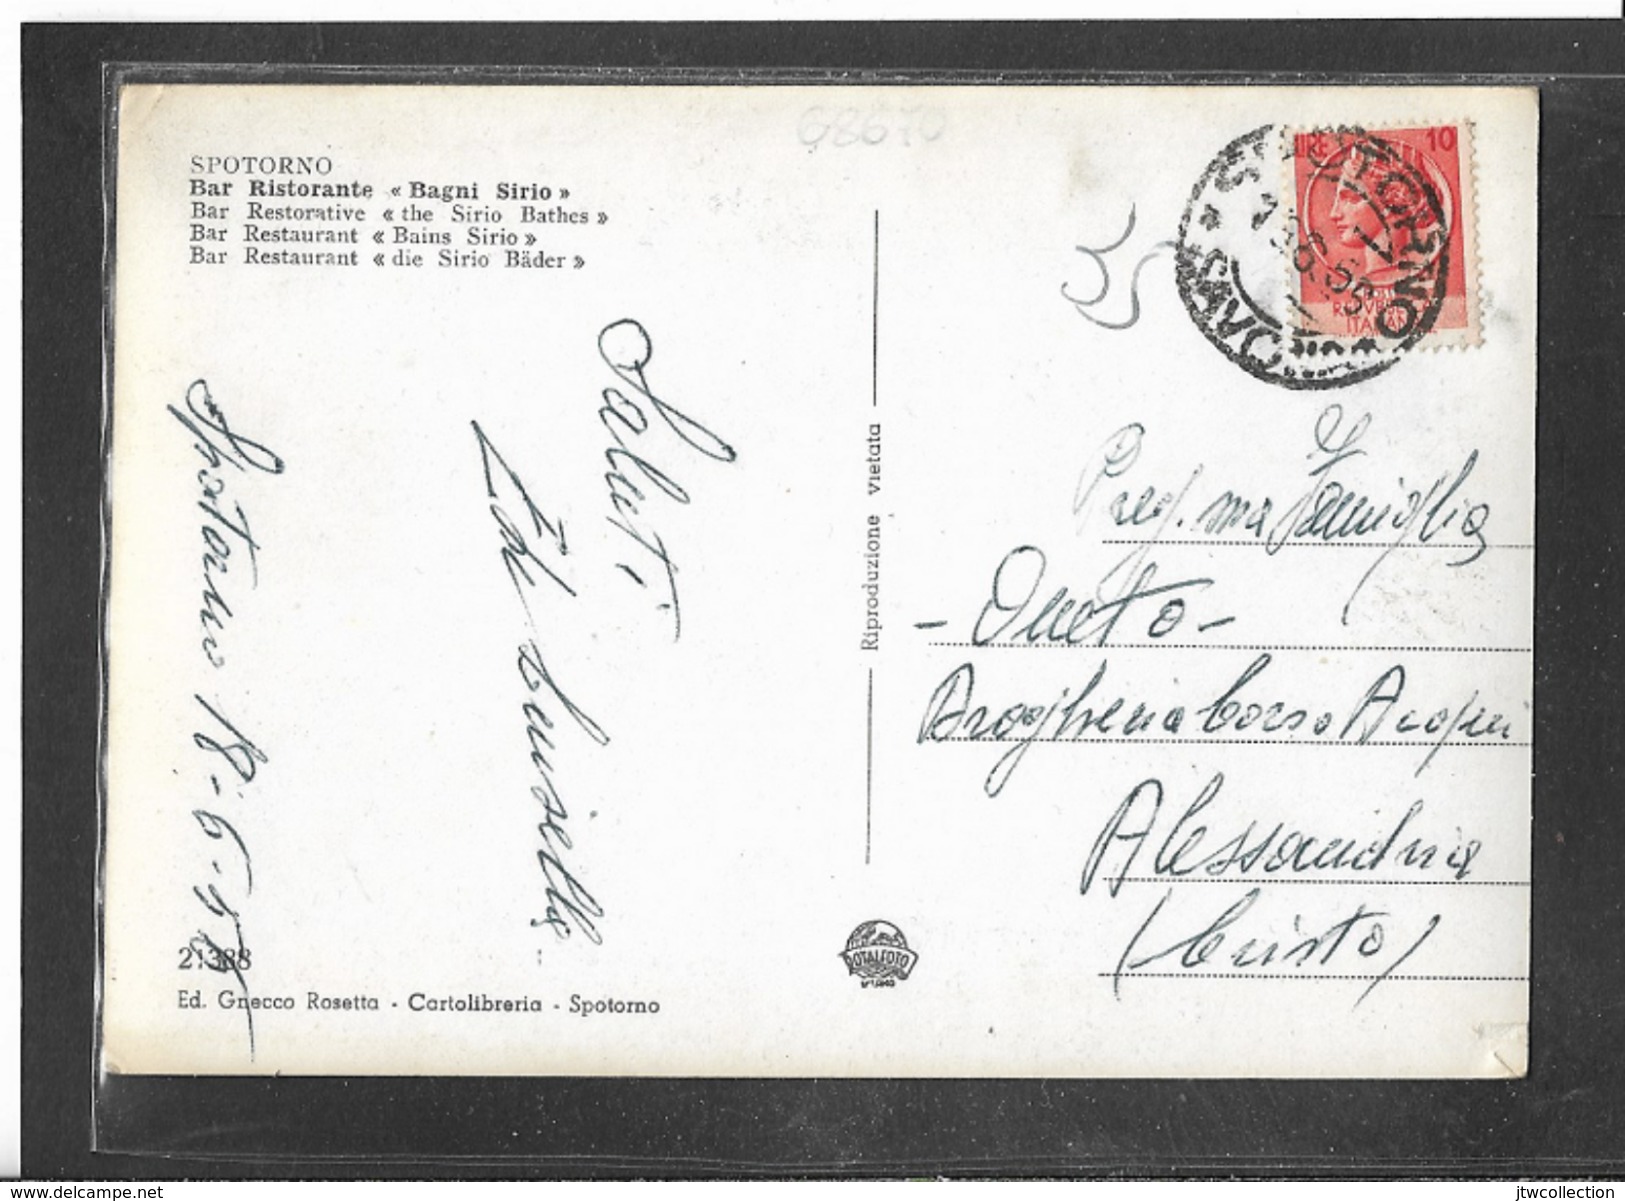 G8670
SPOTORNO
Bar Ristorante « Bagni Sirio »
Bar Restorative « the Sirio Bathes »
Bar Restaurant « Bains Sirio »
Bar Restaurant « die Sirio Bäder »
Saluti
Luisella
Spotorno 18-6-55
21388
Ed. Gnecco Rosetta - Cartolibreria - Spotorno
Riproduzione vietata
ROTALFOTO
MILANO
35
LIRE 10
REPVBBLICA
ITALIANA
SPOTORNO
* SAVONA
Preg.ma Famiglia
- Oneto -
Drogheria Corso Acqui
Alessandria
(Cristo)
delcampe.net
jtwcollection